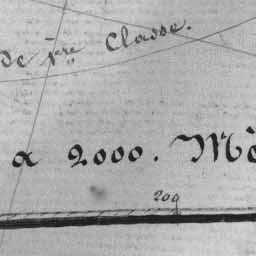 de 1re Classe.
a 2000. Mè
200